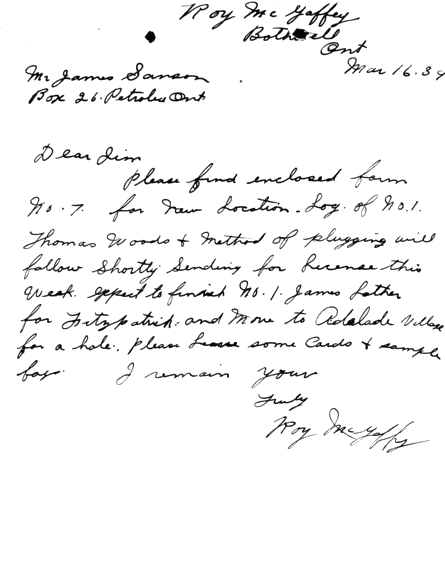 Roy McGaffey
Bothwell
Ont
Mar 16. 39
Mr James Sanson
Box 26. Petrolea Ont
Dear Jim
Please find enclosed form
No. 7. for New Location. Log. of No. 1.
Thomas Woods & Method of plugging will
follow Shortly. Sending for License this
Week. expect to finish No. 1. James Lather
for Fitzpatrick. and Move to Adalade Village
for a hole. Please Leave some Cards & sample
bags. I remain your
Truly
Roy McGaffey